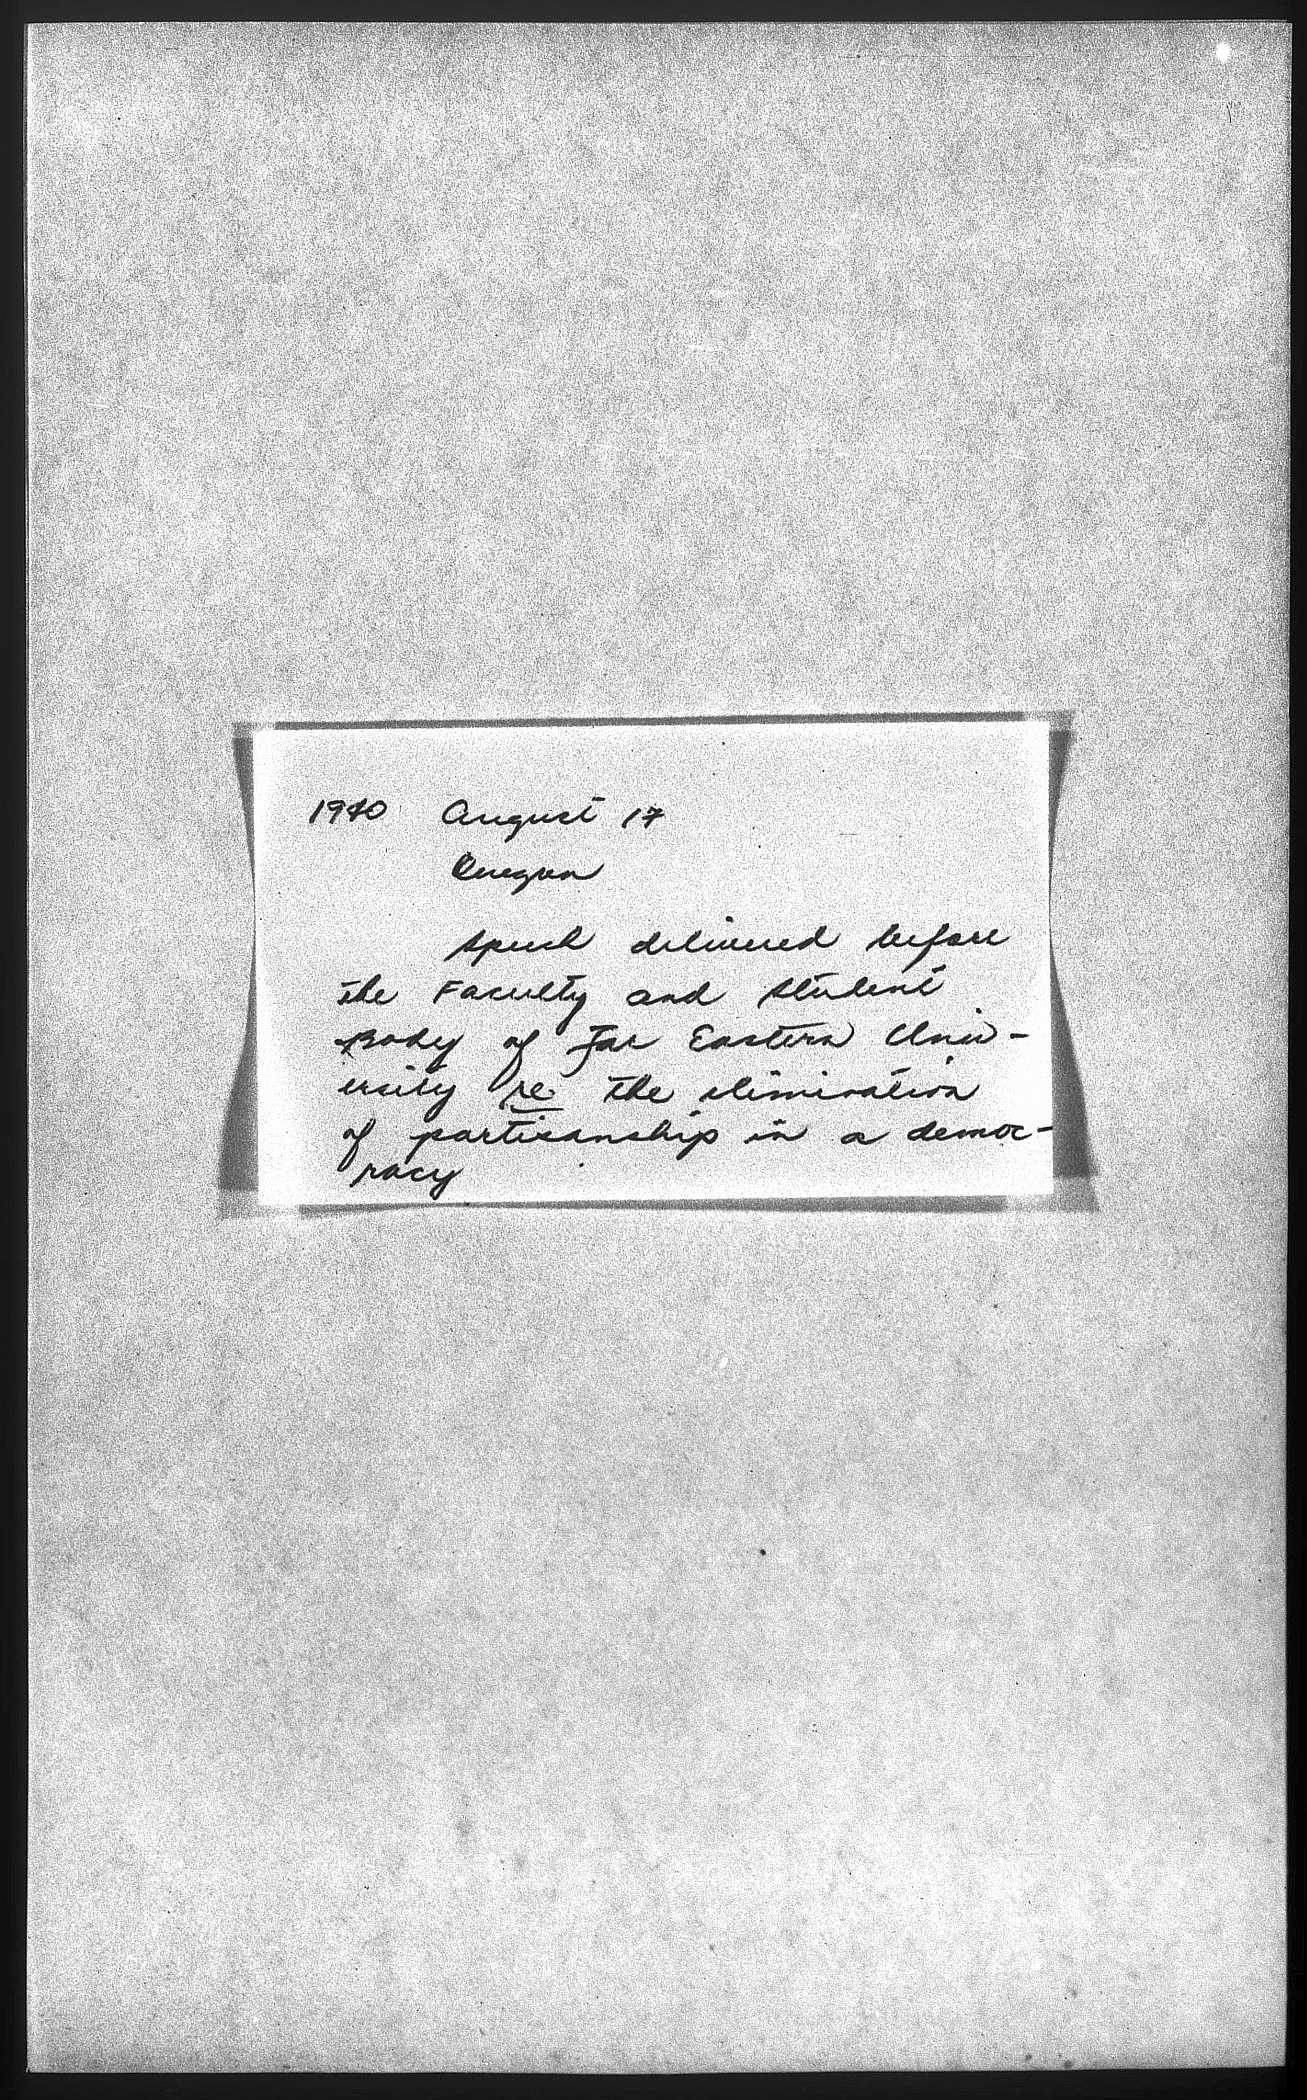 1940 August 17
Quezon
Speech delivered before
the Faculty and Student
Body of Far Eastern Univ-
ersity re the elimination
of partisanship in a democ-
racy